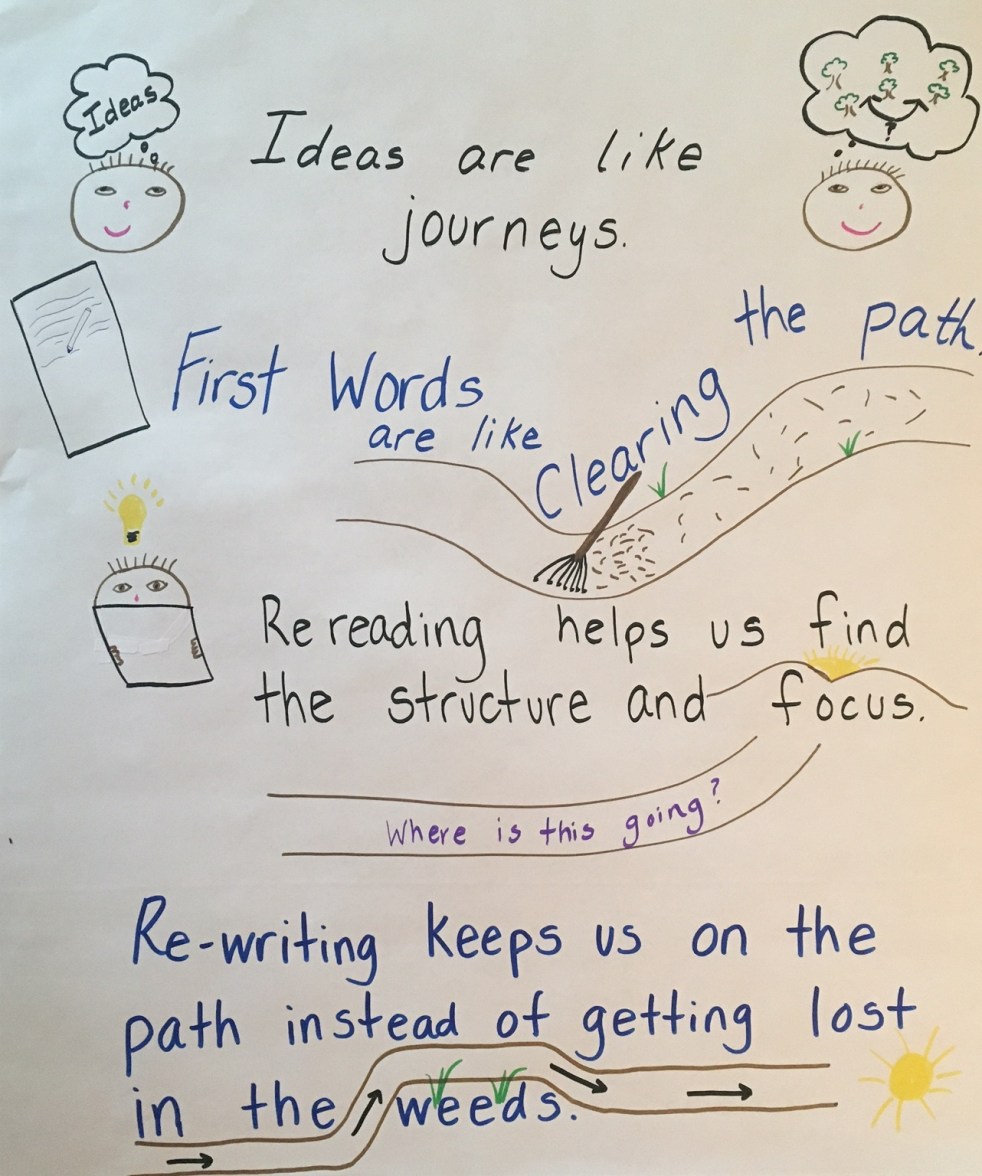 Ideas
Ideas are like
journeys.
?
First Words
are like
Clearing
the path.
Rereading helps us find
the structure and focus.
Where is this going?
Re-writing keeps us on the
path instead of getting lost
in the weeds.